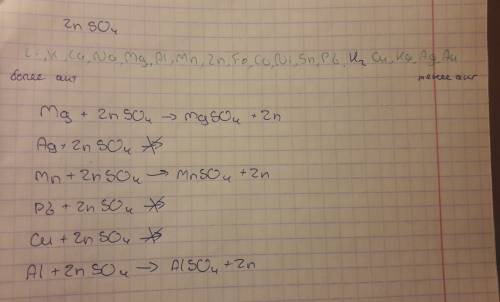 Zn SO₄
Li, K, Ca, Na, Mg, Al, Mn, Zn, Fe, Co, Ni, Sn, Pb, H₂, Cu, Hg, Ag, Au
более акт менее акт
Mg + Zn SO₄ → MgSO₄ + Zn
Ag + Zn SO₄ ↛
Mn + Zn SO₄ → MnSO₄ + Zn
Pb + Zn SO₄ ↛
Cu + Zn SO₄ ↛
Al + Zn SO₄ → AlSO₄ + Zn